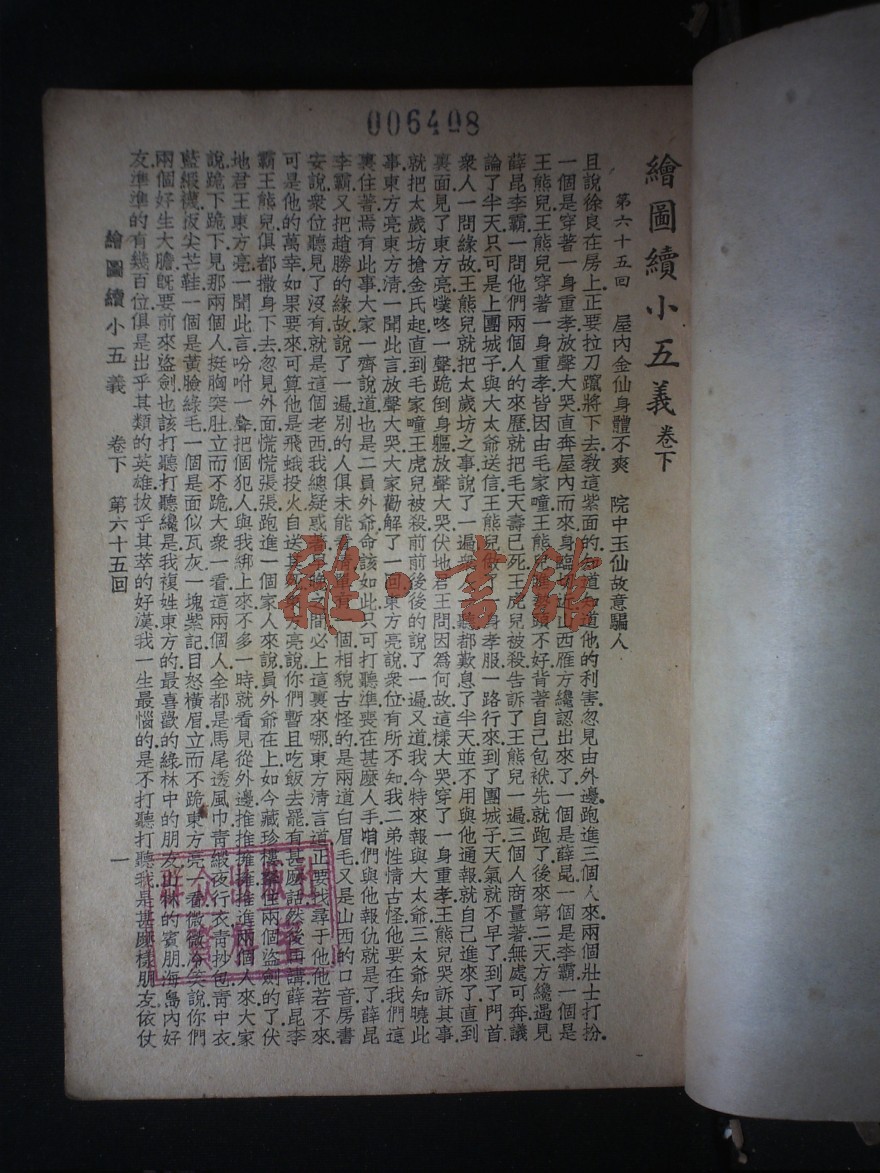 006408
繪圖續小五義 卷下
第六十五回 屋內金仙身體不爽 院中玉仙故意騙人
且說徐良在房上正要拉刀躥將下去教這紫面的知道知道他的利害忽見由外邊跑進三個人來兩個壯士打扮
一個是穿著一身重孝放聲大哭直奔屋內而來身臨切近山西雁方纔認出來了一個是薛昆一個是李霸一個是
王熊兒王熊兒穿著一身重孝皆因由毛家疃王熊兒 不好背著自己包袱先就跑了後來第二天方纔遇見
薛昆李霸一問他們兩個人的來歷就把毛天壽已死王虎兒被殺告訴了王熊兒一遍三個人商量著無處可奔議
論了半天只可是上團城子與大太爺送信王熊兒做了一身孝服一路行來到了團城子天氣就不早了到了門首
衆人一問緣故王熊兒就把太歲坊之事說了一遍衆人 聽都歎息了半天並不用與他通報就自己進來了直到
裏面見了東方亮噗咚一聲跪倒身軀放聲大哭伏地君王問因爲何故這樣大哭穿了一身重孝王熊兒哭訴其事
就把太歲坊搶金氏起直到毛家疃王虎兒被殺前前後後的說了一遍又道我今特來報與大太爺三太爺知曉此
事東方亮東方清一聞此言放聲大哭大家勸解了一回東方亮說衆位有所不知我二弟性情古怪他要在我們這
裏住著焉有此事大家一齊說道也是二員外爺命該如此只可打聽準喪在甚麽人手咱們與他報仇就是了薛昆
李霸又把趙勝的緣故說了一遍別的人俱未能 個相貌古怪的是兩道白眉毛又是山西的口音房書
安說衆位聽見了沒有就是這個老西我總疑惑 之間必上這裏來哪東方清言道正要找尋于他他若不來
可是他的萬幸如果要來可算他是飛蛾投火自送其 亮說你們暫且吃飯去罷有甚麽話然後再講薛昆李
霸王熊兒俱都撒身下去忽見外面慌慌張張跑進一個家人來說員外爺在上如今藏珍樓拿住兩個盜劍的了伏
地君王東方亮一聞此言吩咐一聲把個犯人與我綁上來不多一時就看見從外邊推推擁擁推進兩個人來大家
說跪下跪下見那兩個人挺胸突肚立而不跪大衆一看這兩個人全都是馬尾透風巾青緞夜行衣青抄包青中衣
藍緞襪扳尖芒鞋一個是黃臉綠毛一個是面似瓦灰一塊紫記目怒橫眉立而不跪東方亮一看微微冷笑說你們
兩個好生大膽旣要前來盜劍也該打聽打聽纔是我複姓東方的最喜歡的綠林中的朋友山林的賓朋海島內好
友準準的有幾百位俱是出乎其類的英雄拔乎其萃的好漢我一生最惱的是不打聽打聽我是甚麽樣朋友依仗
繪圖續小五義 卷下 第六十五回 一
群众出版社
資料室
雜·書館